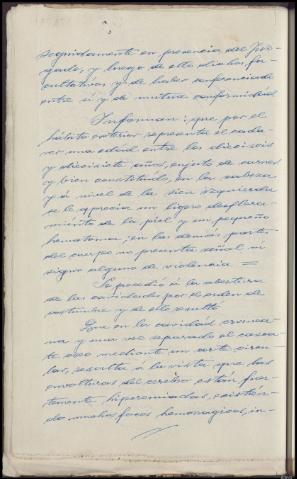 seguidamente en presencia del Juz-
gado, y luego de ello dichos fa-
cultativos y de haber conferenciado
entre sí y de mutua conformidad
Informan: que, por el
hábito exterior representa el cadá-
ver una edad entre los dieciseis
y diecisiete años, sujeto de carnes
y bien constituido, en la cabeza
y á nivel de la sien izquierda
se le aprecia un ligero desflora-
miento de la piel y un pequeño
hematoma; en las demás partes
del cuerpo no presenta señal ni
signo alguno de violencia =
Se procedió á la abertura
de las cavidades por el orden de
costumbre y de ello resultó
Que en la cavidad cranea-
na y una vez separado el casco
óseo mediante un corte circu-
lar, resulta á la vista que las
envolturas del cerebro están fuer-
temente hiperemiadas, existien-
do muchos focos hemorragicos, in-